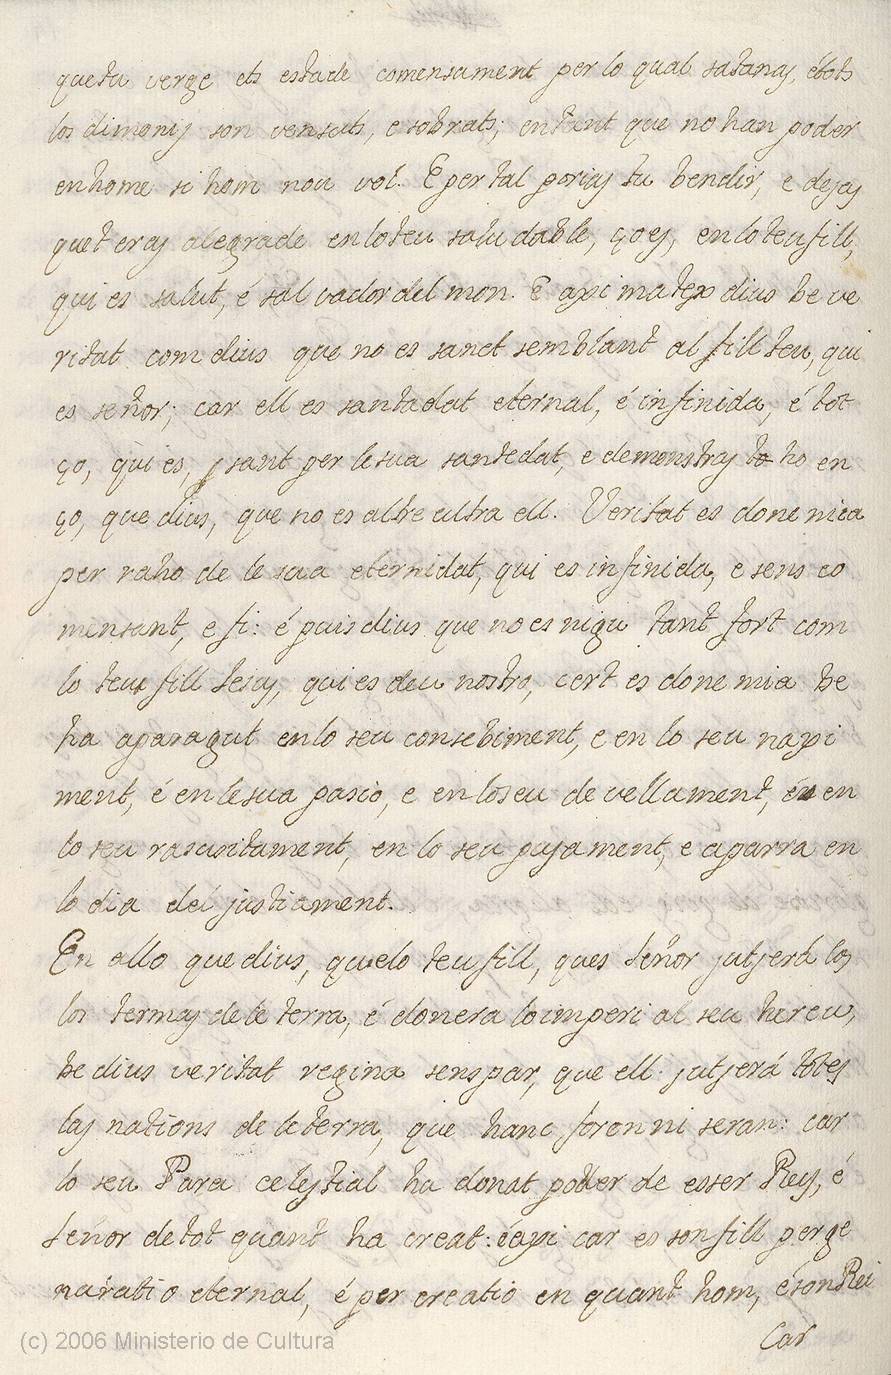 que tu verge ets estade comensament per lo qual satanas, é tots
los dimonis son vensuts, e sobrats; entant que no han poder
en home si hom nou vol. E per tal porias tu bendir, e dejas
quet eras alegrade en lo teu saludable, ço es, en lo teu fill,
qui es salut, é salvador del mon. E axi matex dius be ve
ritat com dius que no es sanct semblant al fill teu, qui
es señor; car ell es santadat eternal, é infinida, é tot
ço, qui es, sant per le sua santedat, e demonstras to ho en
ço, que dius, que no es altre ultra ell. Veritat es done mia
per raho de le sua eternidat, qui es infinida, e sens co
mensant, e fi: é puis dius que no es nigu tant fort com
lo teu fill Jesus, qui es deu nostro, cert es done mia be
ha aparagut en lo seu consebiment, e en lo seu naxi
ment, é en le sua pasció, e en lo seu devellament, én en
lo seu rasusitament, en lo seu pujament, e aparra en
lo dia del justiament.
En allo que dius, que lo teu fill, ques Señor jutjerá los
los termas de le terra, é donera lo imperi al seu hereu,
be dius veritat regina sens par, que ell jutjerá totes
las nations de le terra, que hanc foren ni seran: car
lo seu Para celestial ha donat poder de esser Rey, é
Señor de tot quant ha creat: é axi car es son fill per ge
naratio eternal, é per creatio en quant hom, é son Rei
Car
(c) 2006 Ministerio de Cultura